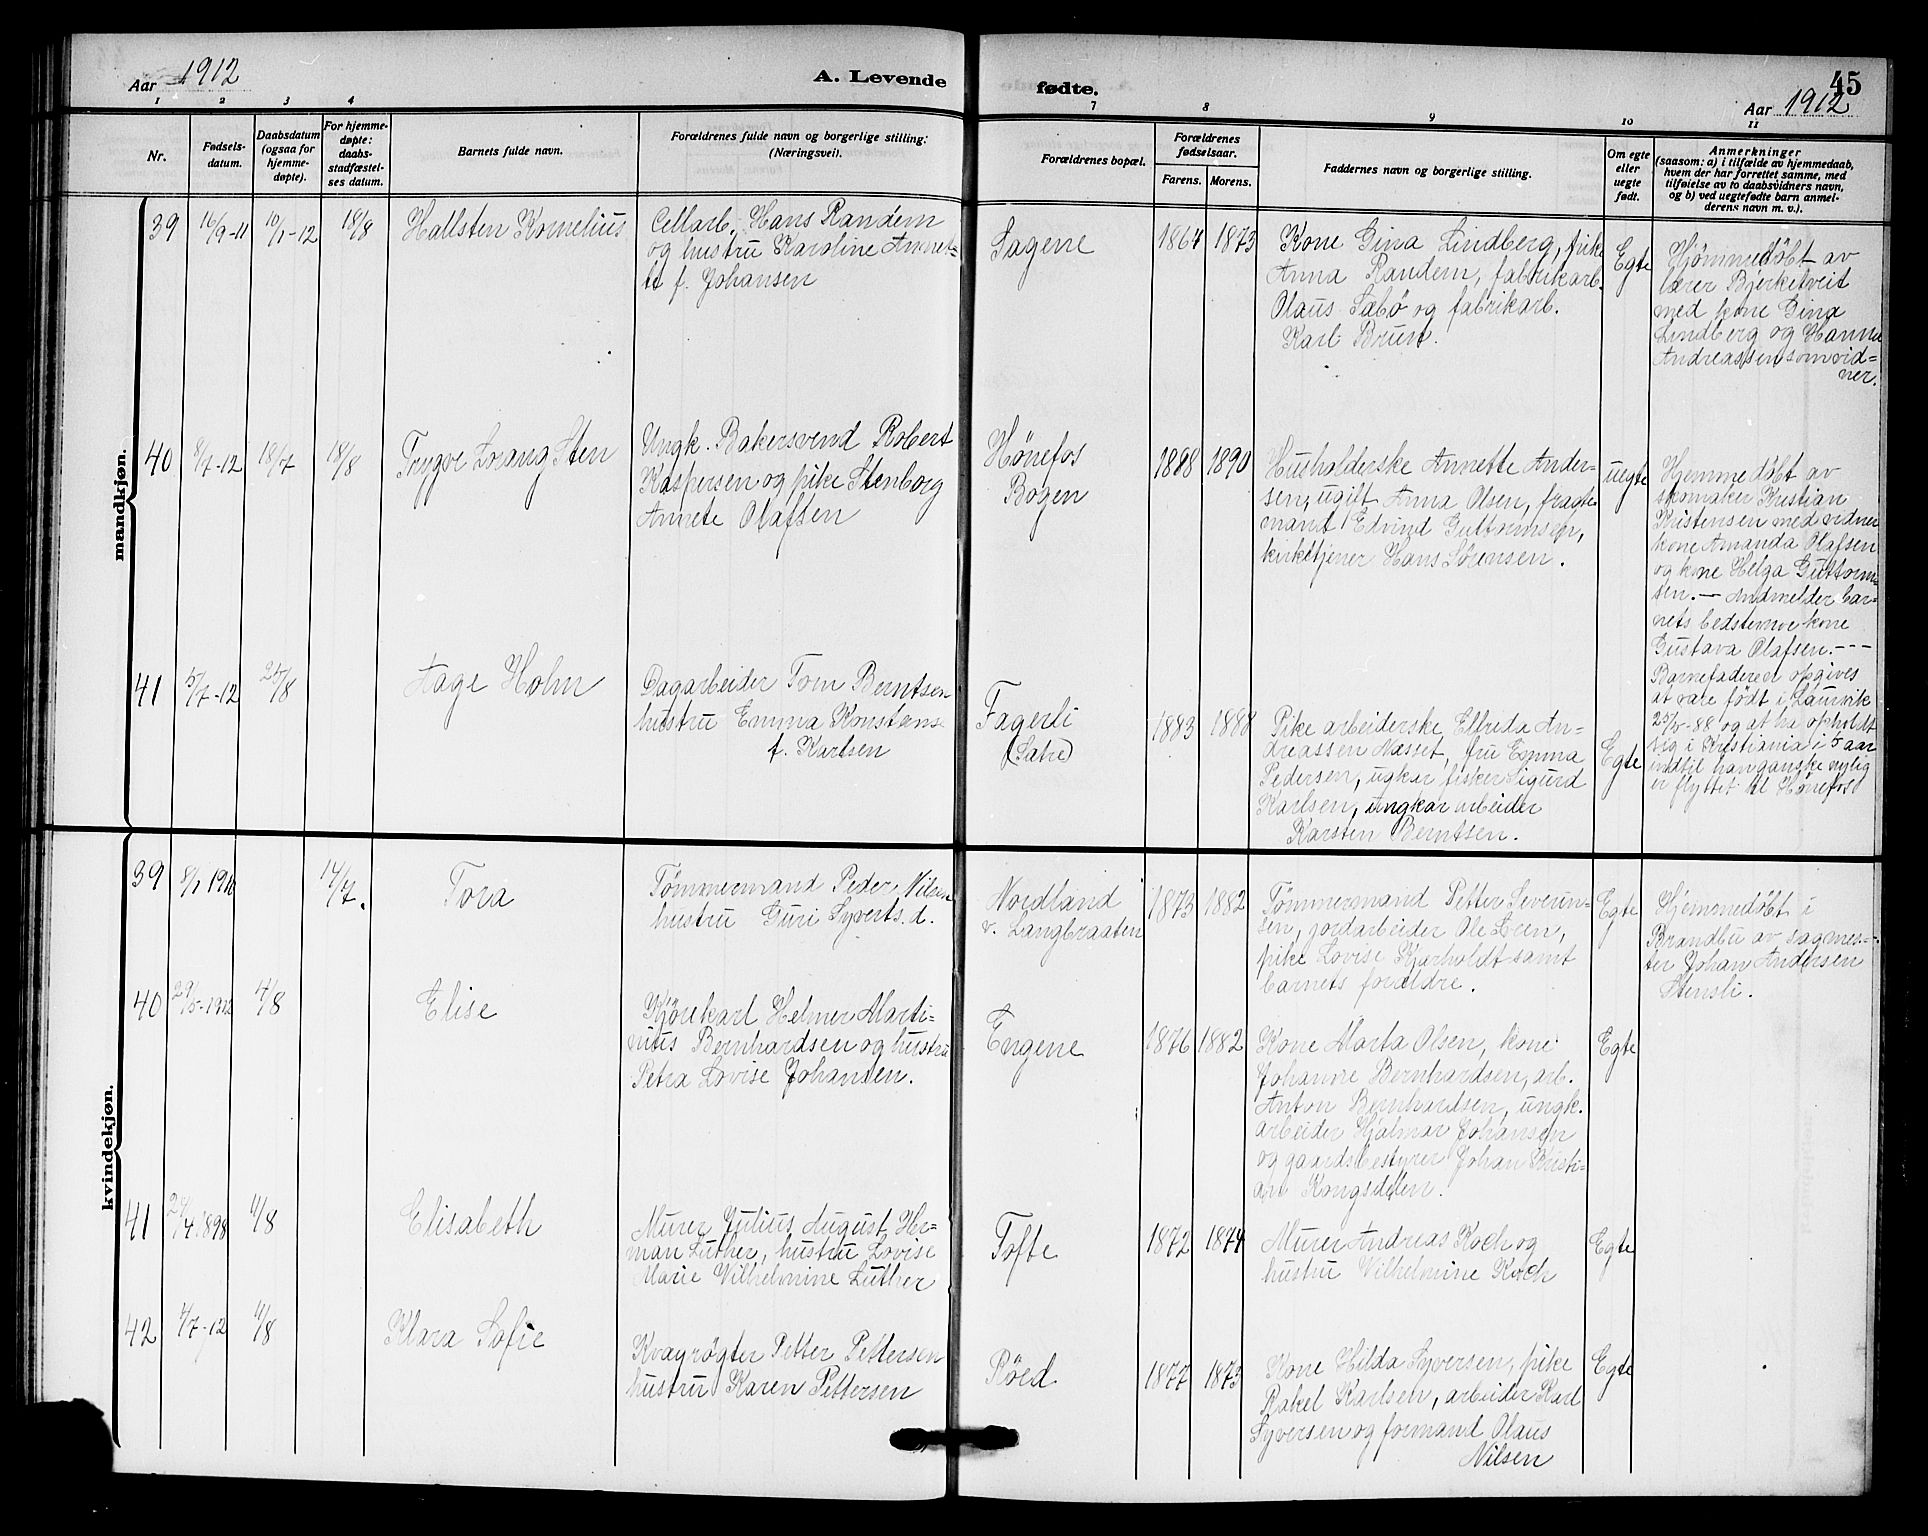 Aar 1912
A. Levende
fødte.
45
Aar 1912
1 2 3 4
7 8 9 10 11
Nr.
Fødsels-
datum.
Daabsdatum
(ogsaa for
hjemme-
døpte).
For hjemme-
døpte:
daabs-
stadfæstel-
ses datum.
Barnets fulde navn.
Forældrenes fulde navn og borgerlige stilling:
(Næringsvei).
Forældrenes bopæl.
Forældrenes
fødselsaar.
Farens. Morens.
Faddernes navn og borgerlige stilling.
Om egte
eller
uegte
født.
Anmerkninger
(saasom: a) i tilfælde av hjemmedaab,
hvem der har forrettet samme, med
tilføielse av to daabsvidners navn,
og b) ved uegtefødte barn anmel-
derens navn m. v.).
mandkjøn.
39
16/9-11
10/1-12
18/8
Hallsten Kornelius
Cellarb. Hans Randem
og hustru Karoline Annet-
te f. Johansen
Sagene
1864
1873
Kone Gina Lindberg, pike
Anna Randem, fabrikarb.
Olaus Sabø og fabrikarb.
Karl Brun.
Egte
Hjømmedøbt av
lærer Bjerketveit
med kone Gina
Lindberg og Hanna
Andreassen som vid-
ner.
40
8/7-12
18/7
18/8
Trygve Lorang Sten
Ungk. Bakersvend Robert
Kaspersen og pike Stenborg
Annete Olafsen
Hønefos
Bogen
1888
1890
Husholderske Annette Ander-
sen, ugift Anna Olsen, fragte-
mand Edvind Guttormsen,
kirketjener Hans Sørensen.
uegte
Hjemmedøbt av
skomaker Kristian
Kristensen med vidner
kone Amanda Olafsen
og kone Helga Guttorm-
sen. — Andmelder bar-
nets bedstemor kone
Gustava Olafsen. ---
Barnefaderen opgives
at være født i Laurvik
25/5-88 og at ha opholdt
sig i Kristiania i 5 aar
indtil han ganske nylig
er flyttet til Hønefos
41
5/7-12
25/8
Aage Holm
Dagarbeider Tom Berntsen
hustru Emma Konstanse
f. Karlsen
Fagerli
(Satre)
1883
1888
Pike arbeiderske Elfrida An-
dreassen Næsset, fru Emma
Pedersen, ugkar fisker Sigurd
Karlsen, ungkar arbeider
Karsten Berntsen.
Egte
kvindekjøn.
39
14/7.
Tora
Tømmermand Peder Nilsen
hustru Guri Syverts.d.
Nordland
v. Langbraaten
1873
1882
Tømmersmand Petter Severin-
sen, jordarbeider Ole Leen,
pike Lovise Kjærholdt samt
barnets forældre.
Egte
Hjemmedøbt i
Brandbu av sagmes-
ter Johan Andersen
Stensli.
40
29/5-1912
4/8
Elise
Kjørekarl Helmer Marti-
nius Bernhardsen og hustru
Petra Lovise Johansen.
Engene
1876
1882
Kone Marta Olsen, kone
Johanne Bernhardsen, arb.
Anton Bernhardsen, ungk.
arbeider Hjalmar Johansen
og gaardsbestyrer Johan Kristi-
an Kongsdelen.
Egte
41
24/4.1898
11/8
Elisabeth
Murer Julius August Her-
man Luther, hustru Lovise
Marie Vilhelmine Luther
Tofte
1872
1874
Murer Andreas Koch og
hustru Vilhelmine Koch
Egte
42
4/7-12
11/8
Klara Sofie
Kvægrøgter Petter Pettersen
hustru Karen Pettersen
Røed
1877
1873
Kone Hilda Syversen, pike
Rakel Karlsen, arbeider Karl
Syversen og formand Olaus
Nilsen
Egte